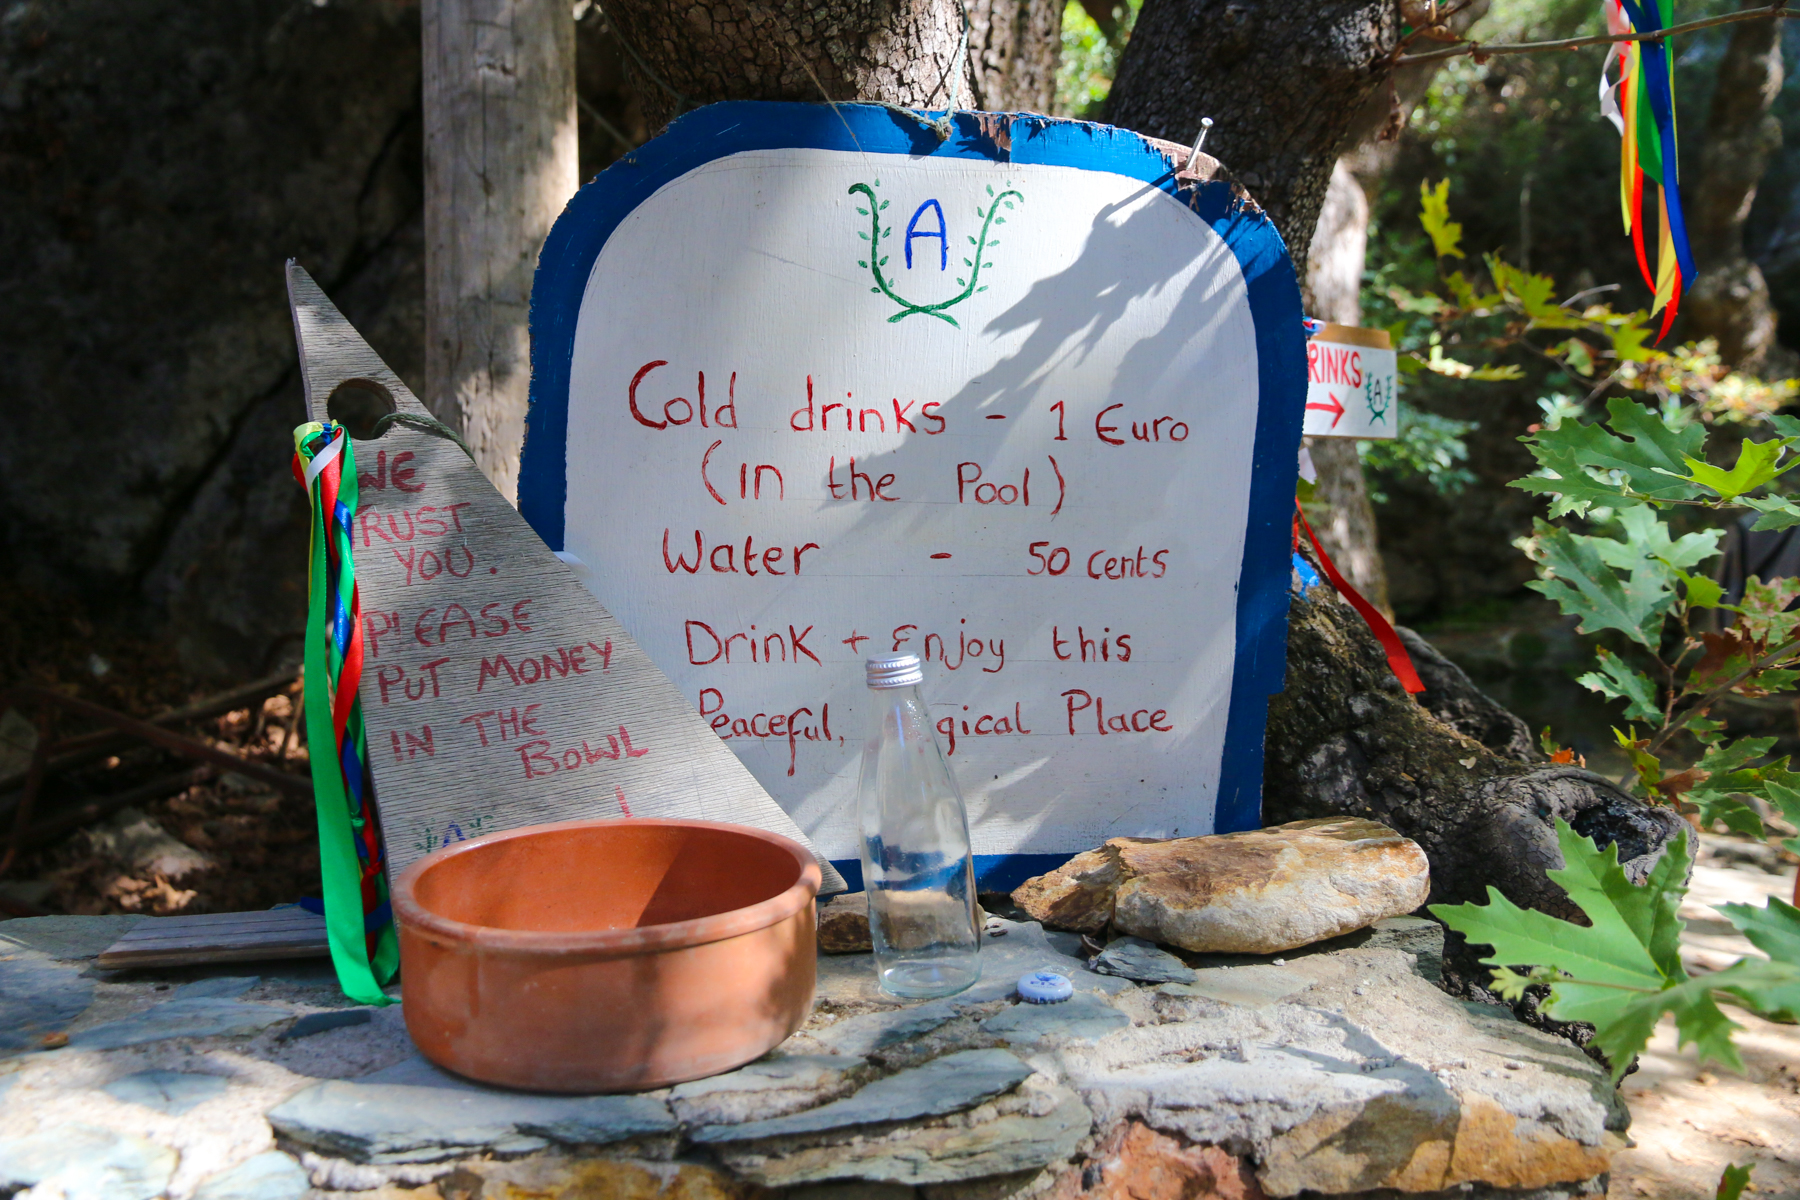 A
Cold drinks - 1 Euro
(in the Pool)
Water - 50 cents
Drink + Enjoy this
Peaceful, gical Place
WE
TRUST
YOU.
PLEASE
PUT MONEY
IN THE
BOWL
A
RINKS
A